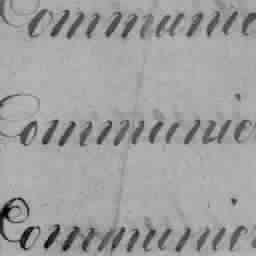 Communic
Communic
Communic